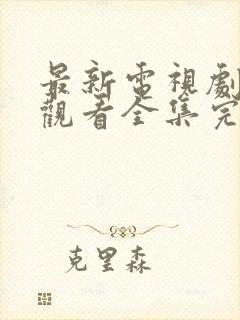 最新電視劇
觀看全集完
克里森